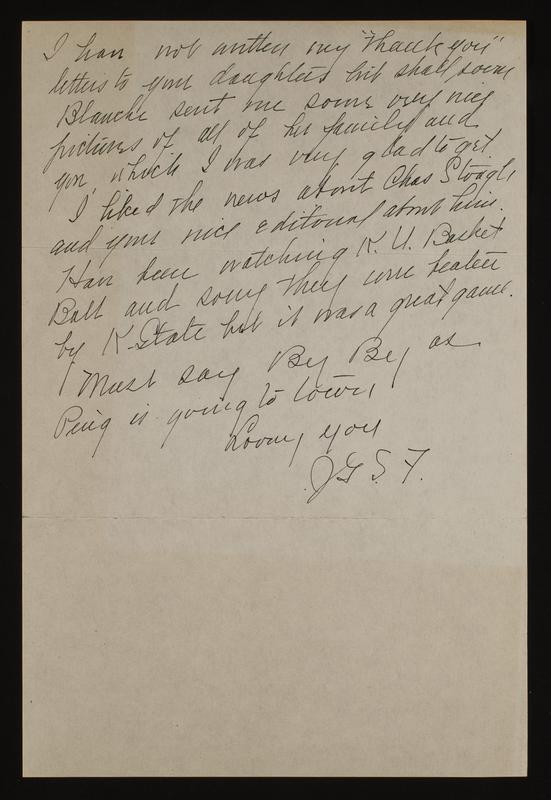 I have not written my "Thank you"
letters to your daughters but shall soon
Blanche sent me some very nice
pictures of all of her family and
you, which I was very glad to get
I liked the news about Chas
and your nice editorial about him.
Have been watching K. U. Basket
Ball and sorry they were beaten
by K-State but it was a great game.
Must say By By as
is going to town
Loving you
J G S. F.